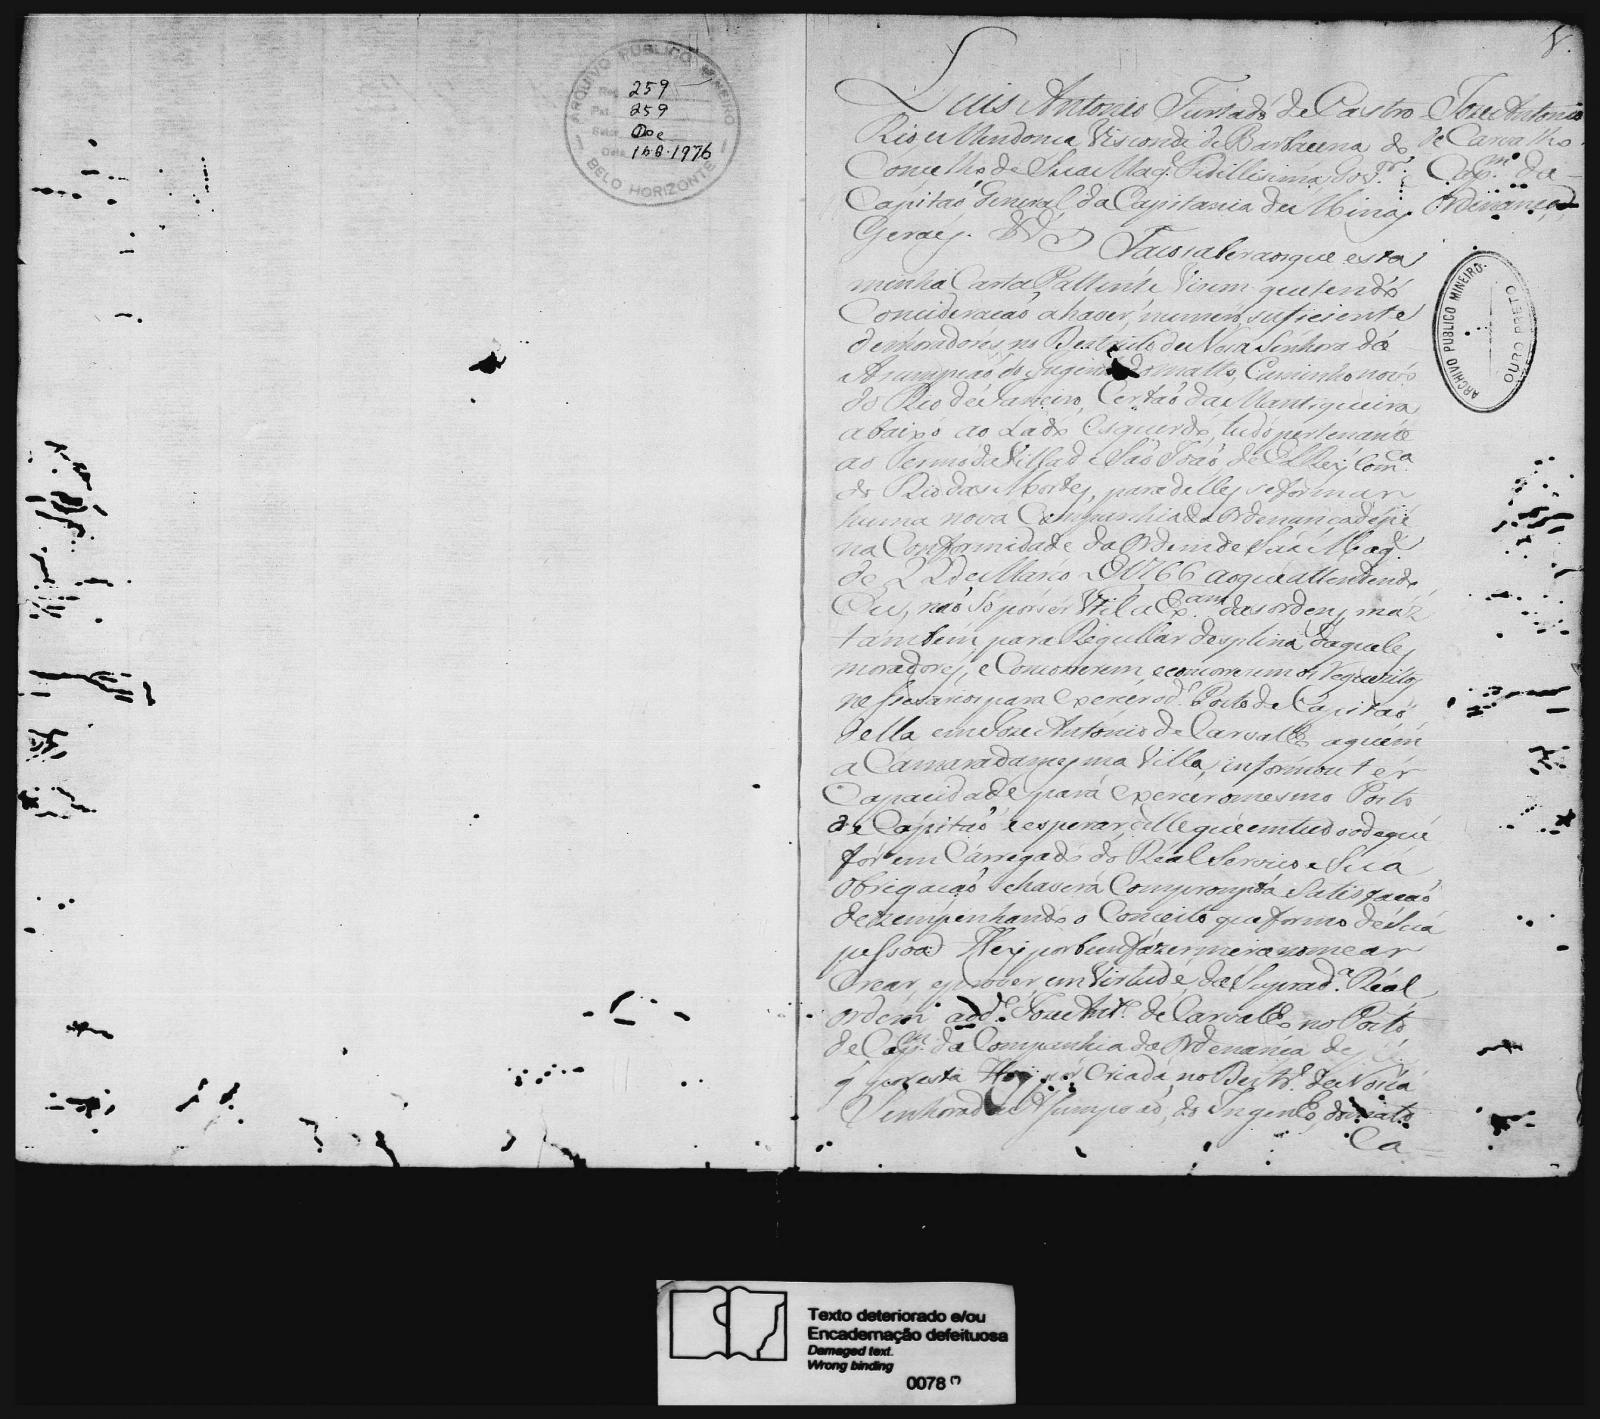 ARQUIVO PUBLICO MINEIRO
259
259
Doc
Data 16.8.1976
BELO HORIZONTE
Luis Antonio Furtado de Castro
Rio de Mendonca Visconde de Barbacena do
Concelho de Sua Mag.e Fidellissima Gov.or e
Capitaõ General da Capitania de Minas
Geraes. Faço saber aos que esta
minha Carta Pattente virem que tendo
Concideracaõ a haver numero suficiente
de moradores no Destricto de Nossa Senhora da
Asumpçaõ do Ingenho do matto, Caminho novo
do Rio de Janeiro, Certaõ da Mantiqueira
abaixo ao Lado Esquerdo, tudo pertencente
ao Termo da Villa de Saõ Joaõ de El Rey Com.ca
do Rio das Mortes, para delles se formar
huma nova Companhia de Ordenanca de pé
na Conformidade da Ordem de Sua Mag.e
de 22 de Março D 1766 ao que attendendo
Eu, naõ Só por ser Util a Ex.am das ordens, maz
tambem para Regullar desplina daquales
moradores, e Concorrerem, e concorrerem os Requezitos
nessesarios para exercer o d.o Posto de Capitaõ
della em Joze Antonio de Carvalho aquem
a Camara da mesma Villa, informou ter
Capacidade para exercer o mesmo Posto
de Capitaõ e esperar delle que em tudo o de que
for em Carregado do Real Serviço e Sua
obrigaçaõ se haverá Com prompta Satisfaçaõ
dezempenhando o Conceito que formo de Sua
pessoa Hey por bem fazer merce nomear
Crear, e prover, em Virtude da Suprad.a Real
ordem ao d.o Joze Ant.o de Carvalho no Posto
de Cap.m da Companhia da Ordenanca de pé
q por esta Hey por Criada no Destr.o de Nossa
Senhora da Asumpçaõ, do Ingenho do mato
Ca
Joze Antonio
de Carvalho
Cap.m da
Ordenança
ARCHIVO PUBLICO MINEIRO.
OURO PRETO
Texto deteriorado e/ou
Encadernação defeituosa
Damaged text.
Wrong binding
0078 (*)